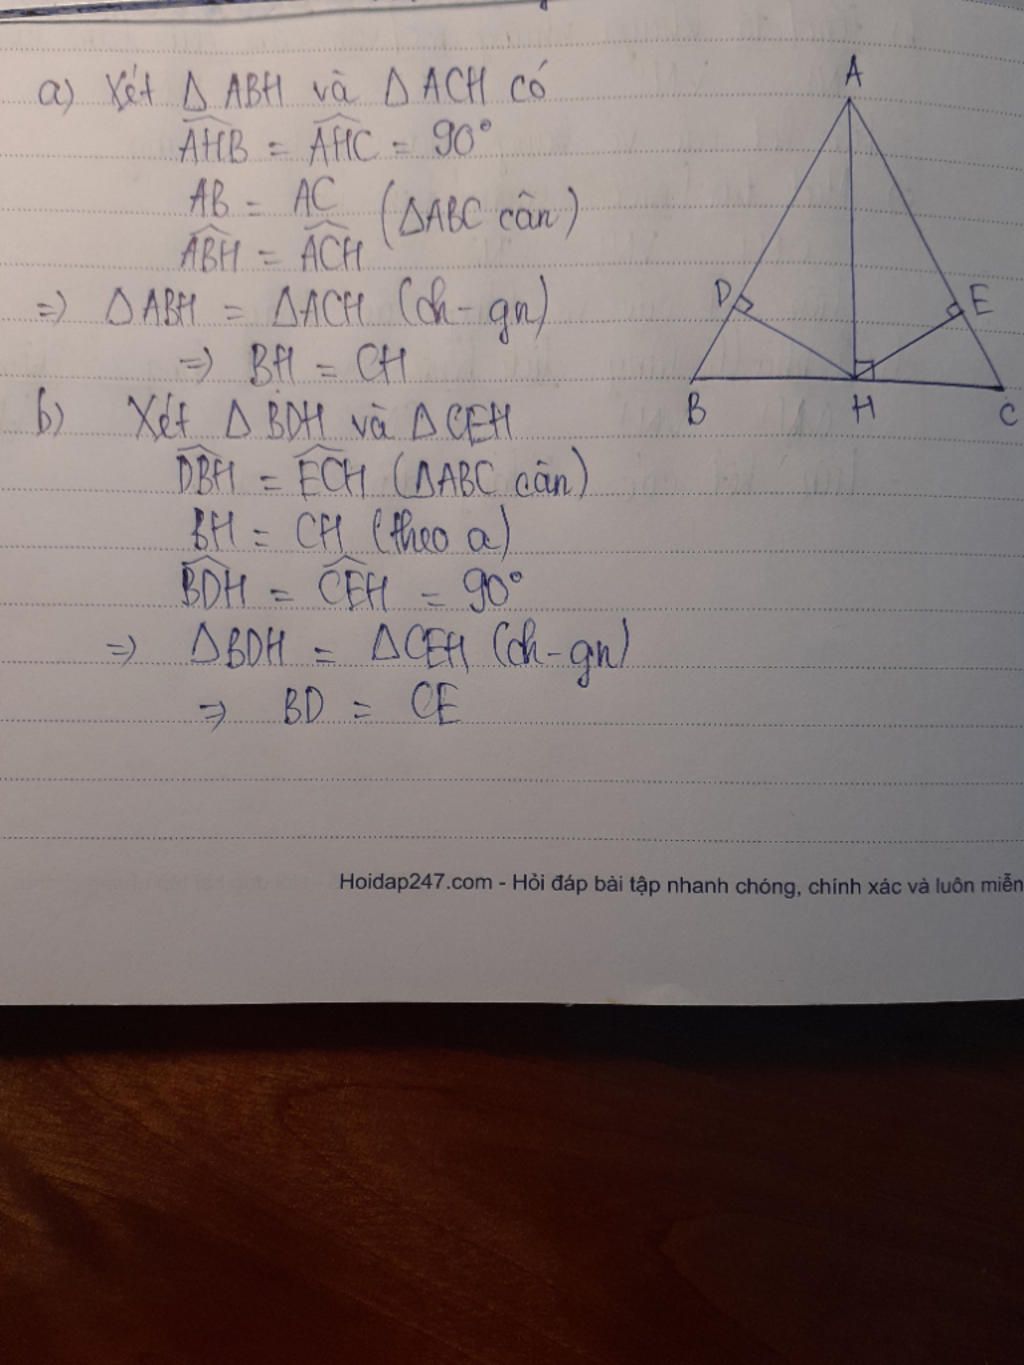 a) Xét Δ ABH và Δ ACH có
A
$\widehat{AHB}$ = $\widehat{AHC}$ = 90°
AB = AC
(ΔABC cân)
$\widehat{ABH}$ = $\widehat{ACH}$
D
E
=> ΔABH = ΔACH (ch - gn)
=> BH = CH
B
H
C
b) Xét Δ BDH và Δ CEH
$\widehat{DBH}$ = $\widehat{ECH}$ (ΔABC cân)
BH = CH (theo a)
$\widehat{BDH}$ = $\widehat{CEH}$ = 90°
=> ΔBDH = ΔCEH (ch - gn)
=> BD = CE
Hoidap247.com - Hỏi đáp bài tập nhanh chóng, chính xác và luôn miễn